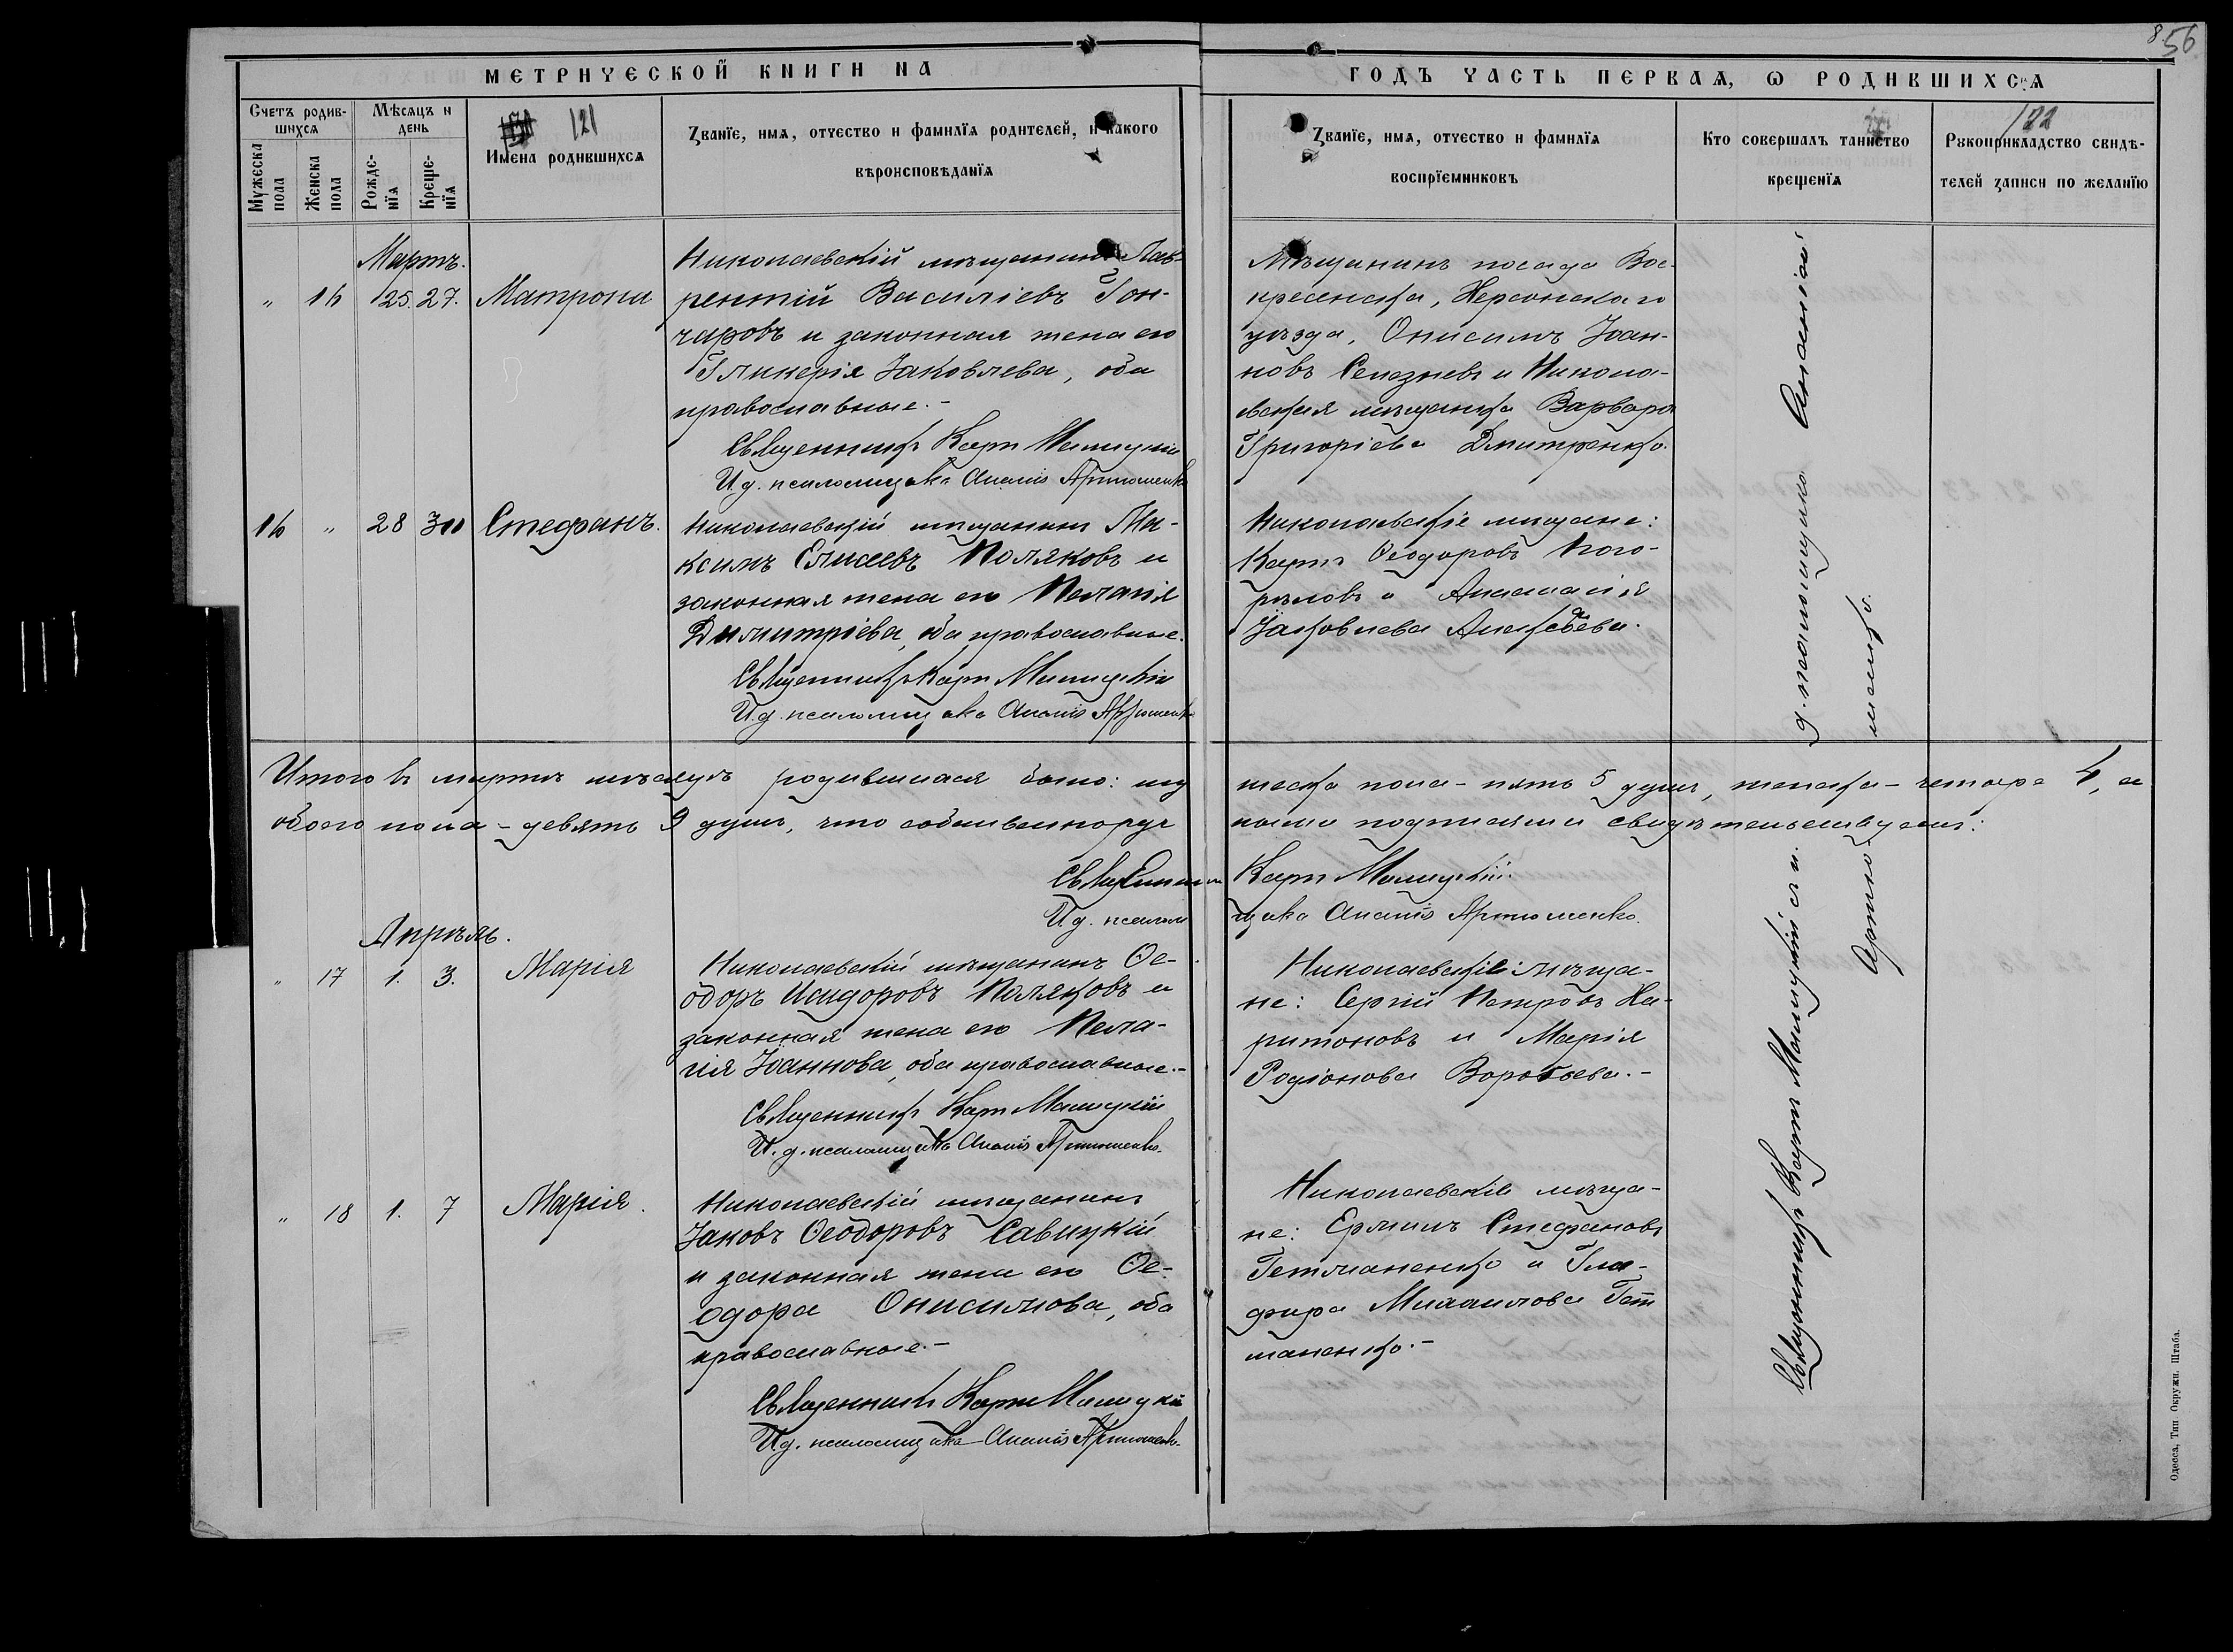 8.
56
МЕТРИЧЕСКОЙ КНИГИ НА
ГОДЪ ЧАСТЬ ПЕРВАЯ, Ѡ РОДИВШИХСЯ
Счетъ родив-
шихся
Мѣсяцъ и
день
121
Имена родившихся
Званіе, имя, отчество и фамилія родителей, и какого
вѣроисповѣданія
Званіе, имя, отчество и фамилія
воспріемниковъ
Кто совершалъ таинство
крещенія
122
Рукоприкладство свидѣ-
телей записи по желанію
Мужеска
пола
Женска
пола
Рожде-
нія
Креще-
нія
Мартъ.
" 16 25. 27. Матрона
Николаевскій мѣщанинъ Лав-
рентій Василіевъ Гон-
чаровъ и законная жена его
Гликерія Іаковлева, оба
православные.-
Священникъ Карпъ Малицкій
И. д. псаломщика Ананій Артюшенко
Мѣщанинъ посада Вос-
кресенска, Херсонскаго
уѣзда, Онисимъ Іоан-
новъ Селезневъ и Никола-
евская мѣщанка Варвара
Григоріева Дмитренко.
16 " 28 30 Стефанъ.
Николаевскій мѣщанинъ Ма-
ксимъ Елисеевъ Поляковъ и
законная жена его Пелагія
Димитріева, оба православные.
Священникъ Карпъ Малицкій
И. д. псаломщика Ананій Артюшенко
Николаевскіе мѣщане:
Карпъ Ѳеодоровъ Пого-
рѣловъ и Анастасія
Іаковлева
д. псаломщика Ананій
Итого въ мартѣ мѣсяцѣ родившихся было: муж
жеска пола - пять 5 душъ, женска - четыре 4, а
обоего пола - девять 9 душъ, что собственноруч
ными подписями свидѣтельствуемъ:
Священникъ Карпъ Малицкій.
И. д. псаломщика Ананій Артюшенко.
Апрѣль.
" 17 1. 3. Марія
Николаевскій мѣщанинъ Ѳе-
одоръ Исидоровъ Поляковъ и
законная жена его Пела-
гія Іоаннова, оба православные.-
Священникъ Карпъ Малицкій
И. д. псаломщика Ананій Артюшенко.
Николаевскіе мѣща-
не: Сергій Петровъ Ха-
ритоновъ и Марія
Родіонова Воробьева.-
" 18 1. 7 Марія.
Николаевскій мѣщанинъ
Іаковъ Ѳеодоровъ Савицкій
и законная жена его Ѳе-
одора Онисимова, оба
православные.-
Священникъ Карпъ Малицкій
И. д. псаломщика Ананій Артюшенко.
Николаевскіе мѣща-
не: Ермилъ Стефановъ
Гетманенко и Гла-
фира Михаилова Гет
маненко.-
Священникъ Карпъ Малицкій
Артю-
шенко.
Одесса, Тип Окружн. Штаба.